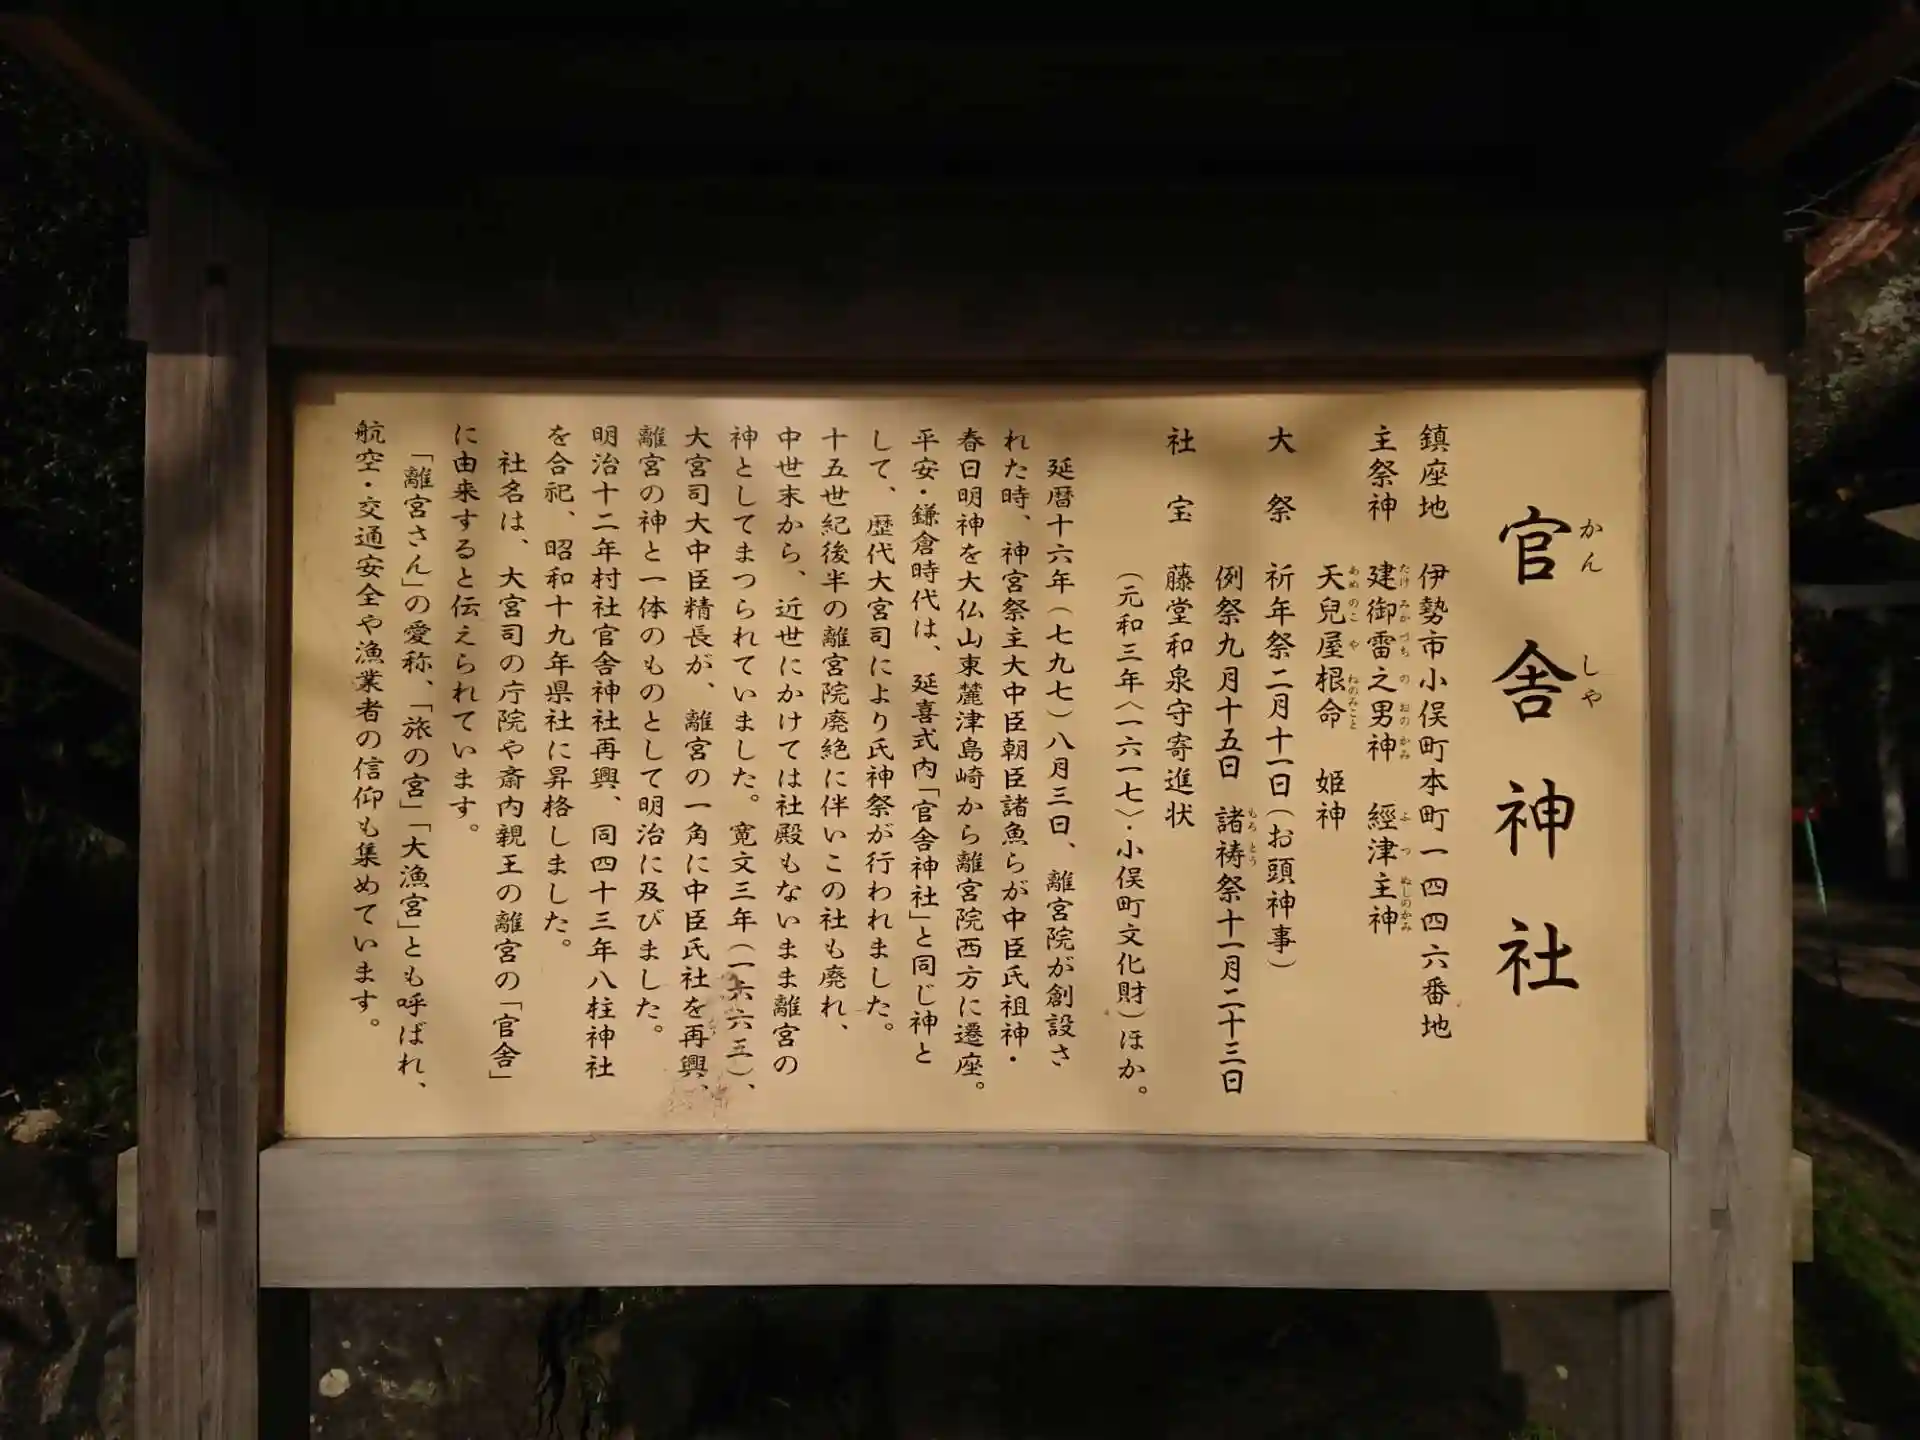 官舎神社
かんしや
鎮座地 伊勢市小俣町本町一四四六番地
主祭神 建御雷之男神 經津主神
たけみかづちのおのかみ ふつぬしのかみ
天兒屋根命 姫神
あめのこやねのみこと
大祭 祈年祭二月十一日(お頭神事)
例祭九月十五日 諸祷祭十一月二十三日
もろとう
社宝 藤堂和泉守寄進状
(元和三年〈一六一七〉・小俣町文化財)ほか。
延暦十六年(七九七)八月三日、離宮院が創設さ
れた時、神宮祭主大中臣朝臣諸魚らが中臣氏祖神・
春日明神を大仏山東麓津島崎から離宮院西方に遷座。
平安・鎌倉時代は、延喜式内「官舎神社」と同じ神と
して、歴代大宮司により氏神祭が行われました。
十五世紀後半の離宮院廃絶に伴いこの社も廃れ、
中世末から、近世にかけては社殿もないまま離宮の
神としてまつられていました。寛文三年(一六六三)、
大宮司大中臣精長が、離宮の一角に中臣氏社を再興、
離宮の神と一体のものとして明治に及びました。
明治十二年村社官舎神社再興、同四十三年八柱神社
を合祀、昭和十九年県社に昇格しました。
社名は、大宮司の庁院や斎内親王の離宮の「官舎」
に由来すると伝えられています。
「離宮さん」の愛称、「旅の宮」「大漁宮」とも呼ばれ、
航空・交通安全や漁業者の信仰も集めています。